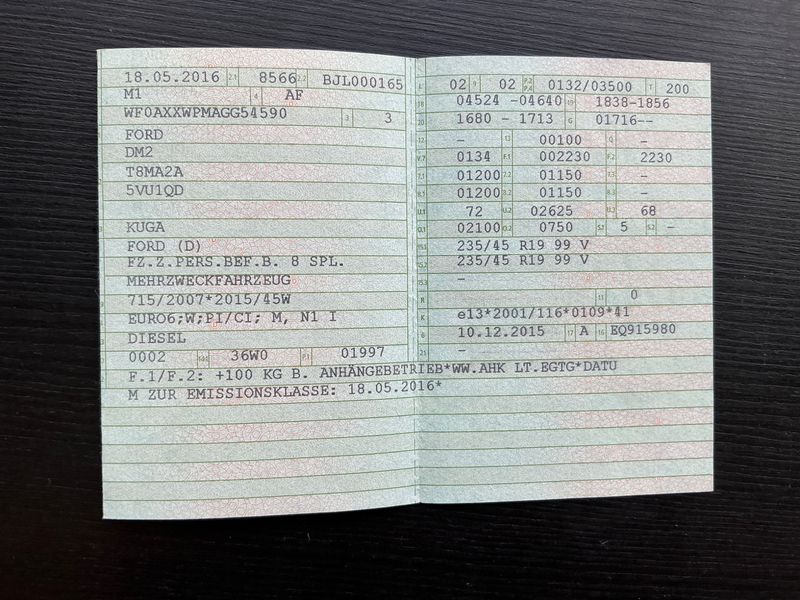 18.05.2016 2.1 8566 2.2 BJL000165
M1 4 AF
WF0AXXWPMAGG54590 3 3
FORD
DM2
T8MA2A
5VU1QD
KUGA
FORD (D)
FZ.Z.PERS.BEF.B. 8 SPL.
MEHRZWECKFAHRZEUG
715/2007*2015/45W
EURO6;W;PI/CI; M, N1 I
DIESEL
0002 36W0 P.1 01997
F.1/F.2: +100 KG B. ANHÄNGEBETRIEB*WW.AHK LT.EGTG*DATU
M ZUR EMISSIONSKLASSE: 18.05.2016*
L 02 9 02 P.2 P.4 0132/03500 T 200
18 04524 -04640 19 1838-1856
20 1680 - 1713 G 01716--
12 - 13 00100 Q -
V.7 0134 F.1 002230 F.2 2230
7.1 01200 7.2 01150 7.3 -
8.1 01200 8.2 01150 8.3 -
U.1 72 U.2 02625 U.3 68
O.1 02100 O.2 0750 S.1 5 S.2 -
15.1 235/45 R19 99 V
15.2 235/45 R19 99 V
15.3 -
R 11 0
K e13*2001/116*0109*41
6 10.12.2015 17 A 16 EQ915980
21 -